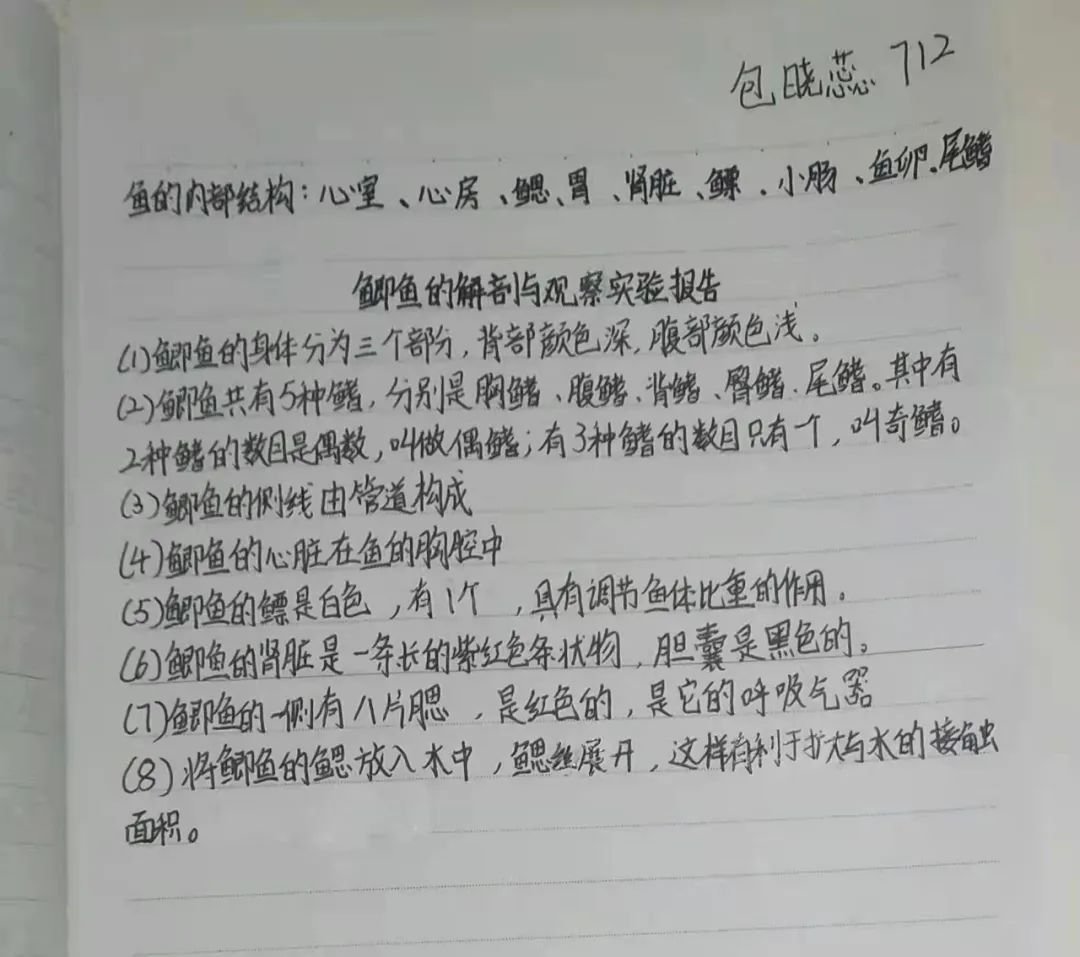 包晓蕊 712
鱼的内部结构：心室、心房、鳃、胃、肾脏、鳔、小肠、鱼卵、尾鳍
鲫鱼的解剖与观察实验报告
(1)鲫鱼的身体分为三个部分，背部颜色深，腹部颜色浅。
(2)鲫鱼共有5种鳍，分别是胸鳍、腹鳍、背鳍、臀鳍、尾鳍。其中有
2种鳍的数目是偶数，叫做偶鳍；有3种鳍的数目只有一个，叫奇鳍。
(3)鲫鱼的侧线由管道构成
(4)鲫鱼的心脏在鱼的胸腔中
(5)鲫鱼的鳔是白色，有1个，具有调节鱼体比重的作用。
(6)鲫鱼的肾脏是一条长的紫红色条状物，胆囊是黑色的。
(7)鲫鱼的一侧有八片腮，是红色的，是它的呼吸气器
(8)将鲫鱼的鳃放入水中，鳃丝展开，这样有利于扩大与水的接触
面积。